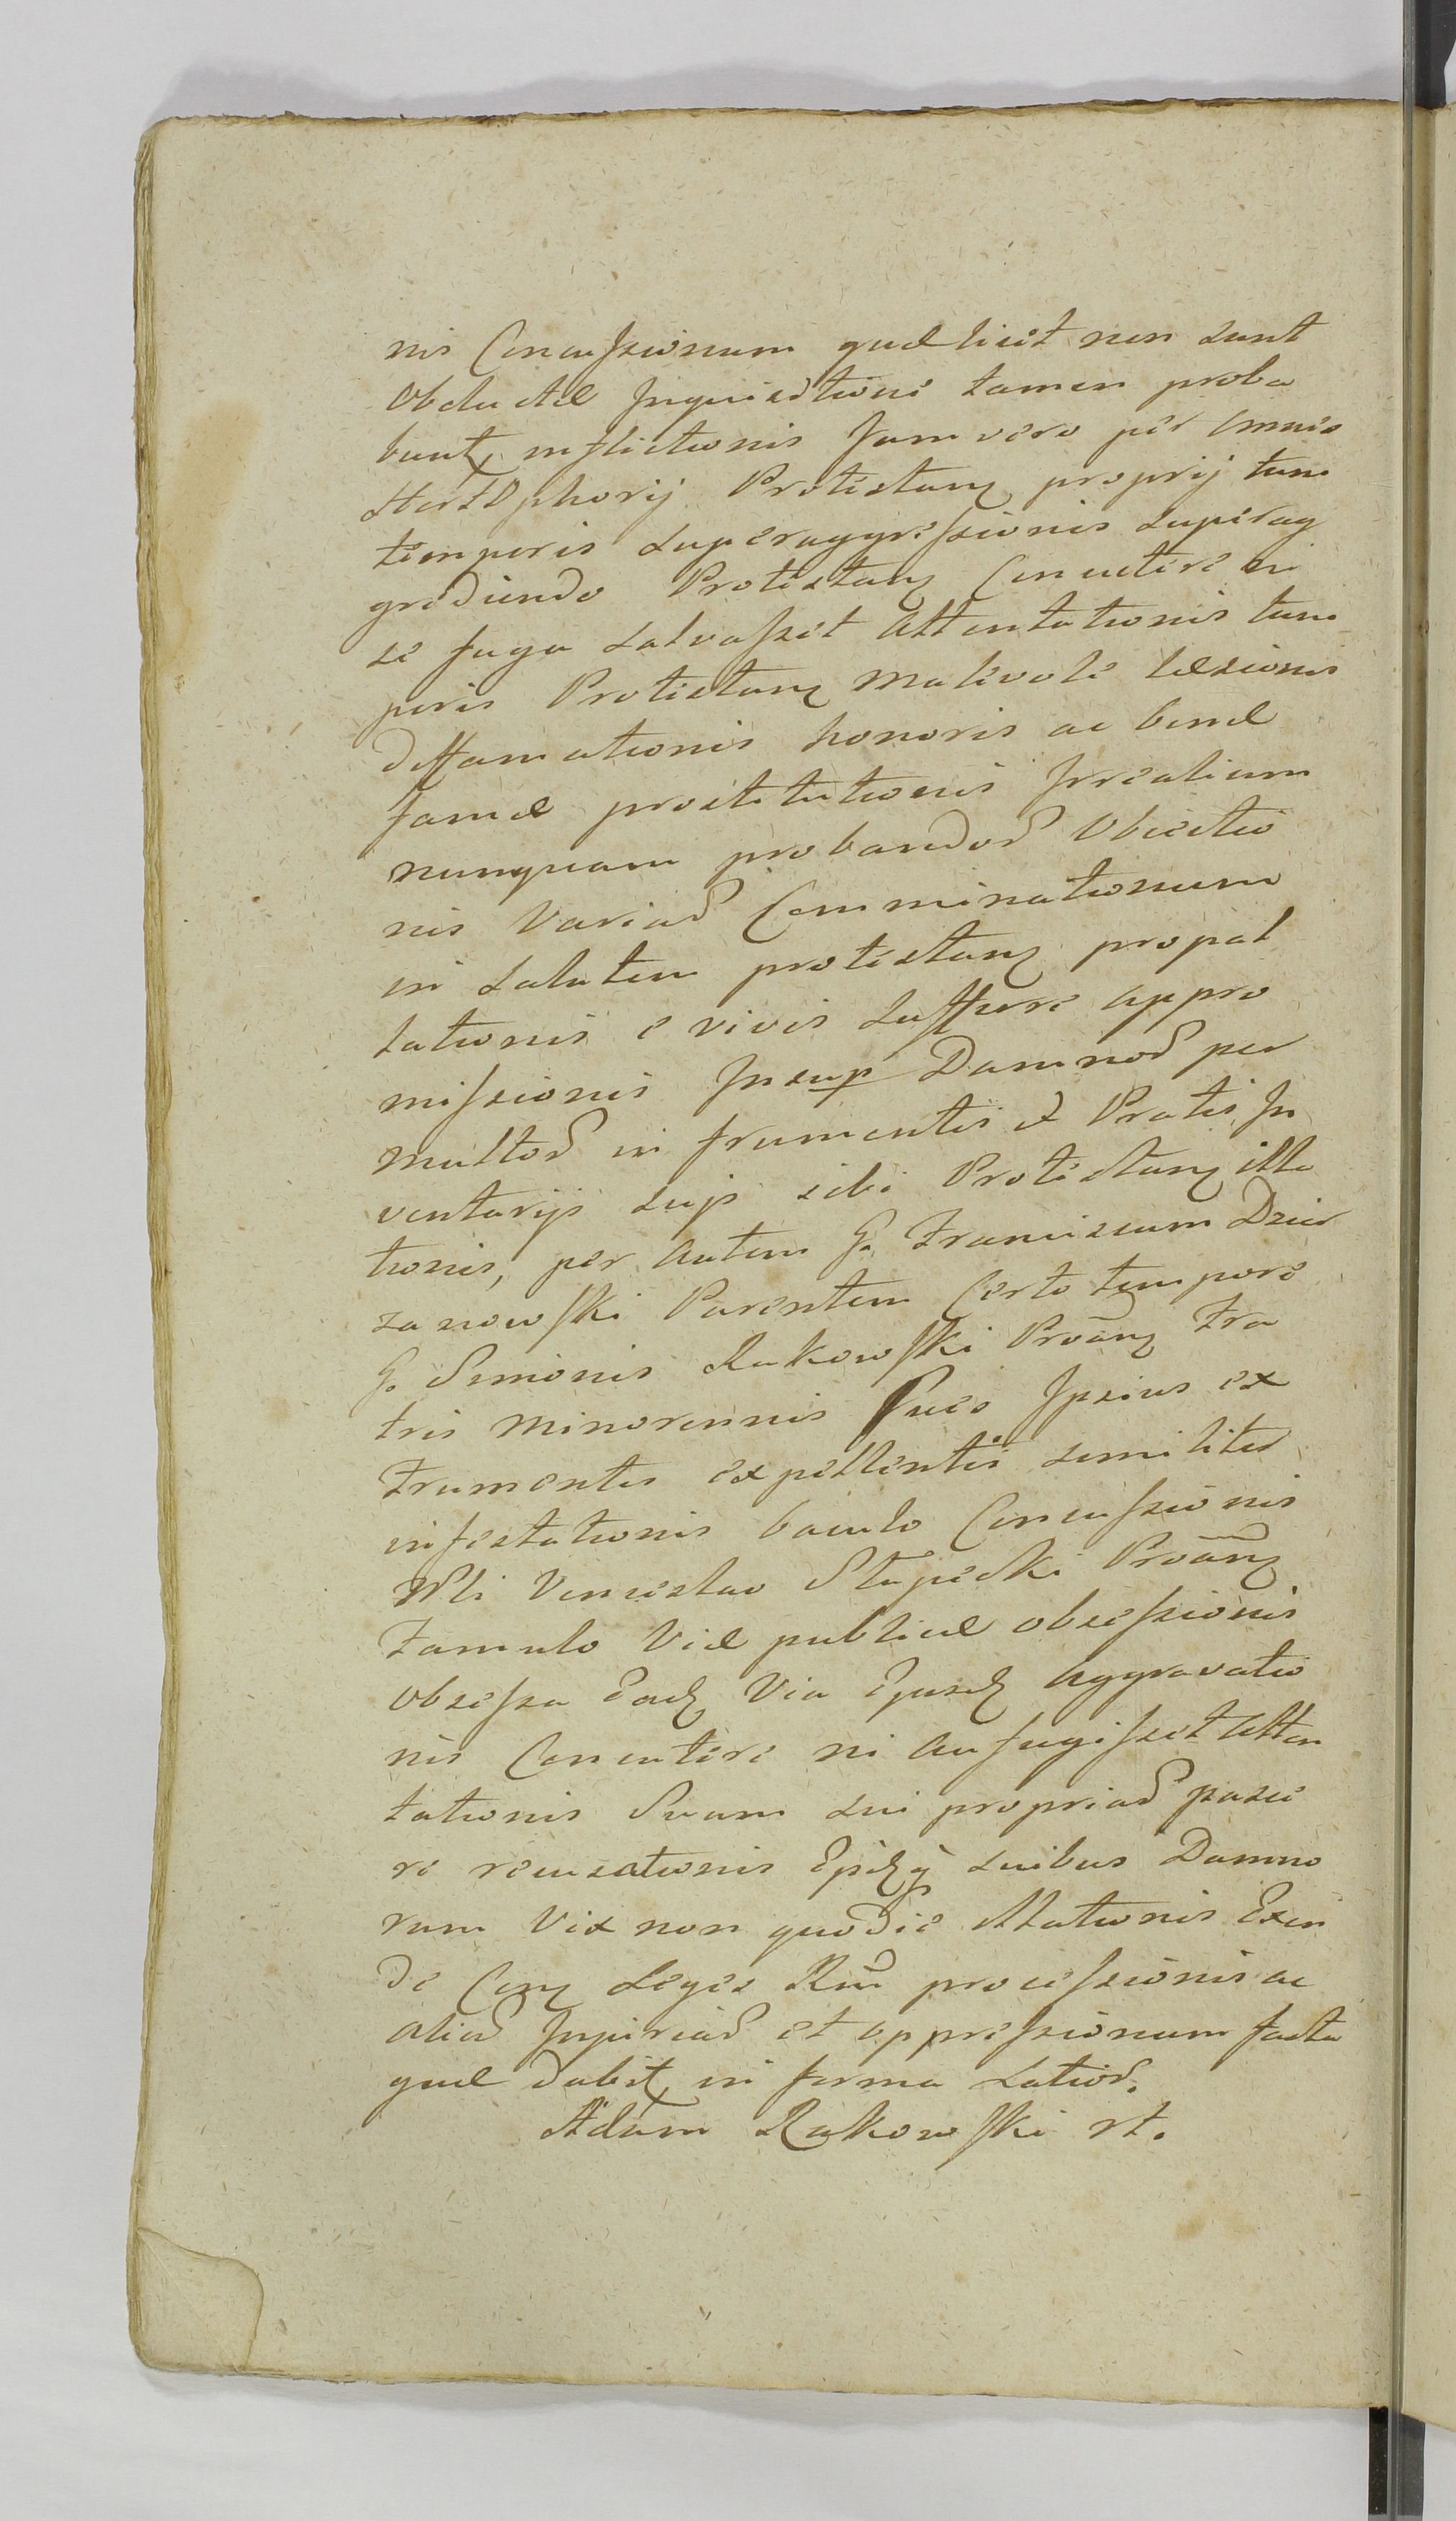 nis Concussionum quæ licet non sunt
Obductæ Inquisitione tamen proba
bunt, inflictionis Jam vero per omnes
proprij tum
temporis superaggressionis superag
grediendo Protestan Concutere ni
se fuga salvasset Attentationis tem
poris Protestan malevole læsionis
diffamationis honoris ac benæ
famæ prostitutionis
nunquam proband Obiectio
nis Variar Comminationum
in salutem protestan propal
lationis e vivis sufferre appro
missionis Insup Damnor per
multor in frumentis et Pratis In
ventarijs suis sibi Protestan illa
tionis, per autem G. Franciscum Dzier
zanowski Parentem Certo tempore
G. Simonis Rakowski Proãn Fra
tris minorennis Sues Ipsius ex
Frumentis expellentis similiter
infestationis baculo Concussionis
Nbli Venceslao Słupecki Proãn
Famulo Viæ publicæ obsessionis
obsessa Ead Via Ejusd Aggravatio
nis Concutere ni aufugisset Atten
tationis Suam sui propriar pasce
re recusationis suibus Damno
rum Vix non quodie illationis Exin
de Con Leges Rni processionis ac
aliar Injuriar et oppressionum facta
quæ dabit, in forma Latior.
Adam Rakowski rt.